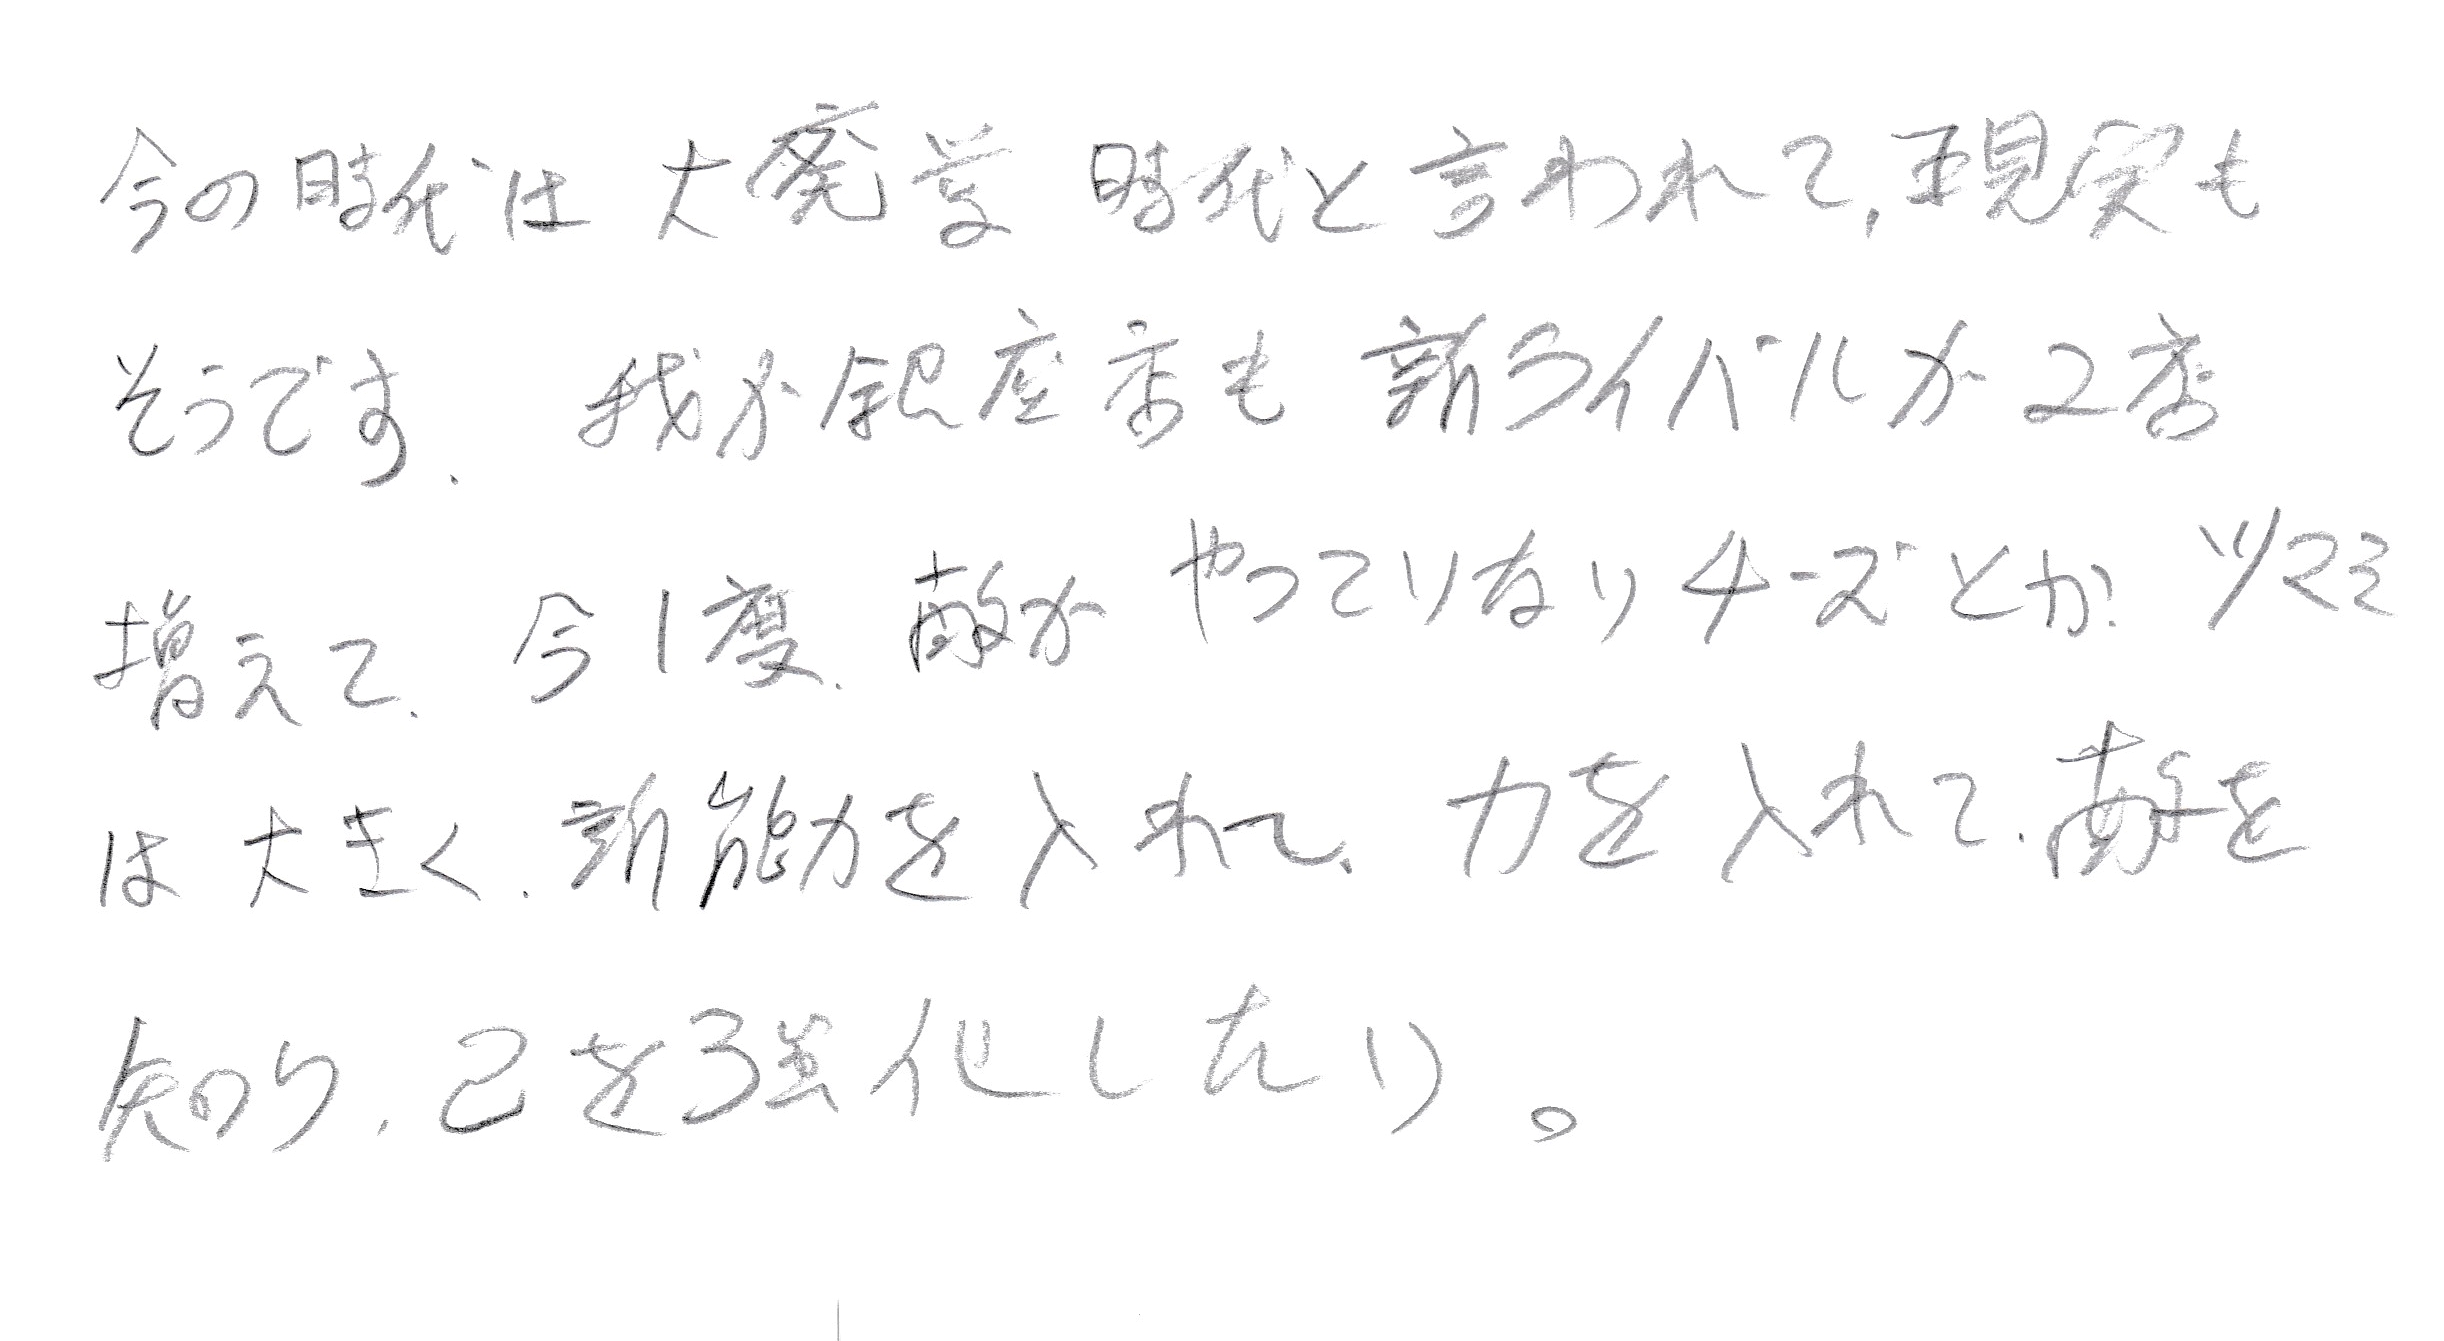 今の時代は大廃業時代と言われて、現実も
そうです、我が銀座店も新ライバルが2店
増えて、今1度、敵がやっていないチーズとか、ツマミ
は大きく、新能力を入れて、力を入れて、敵を
知り、己を強化したい。